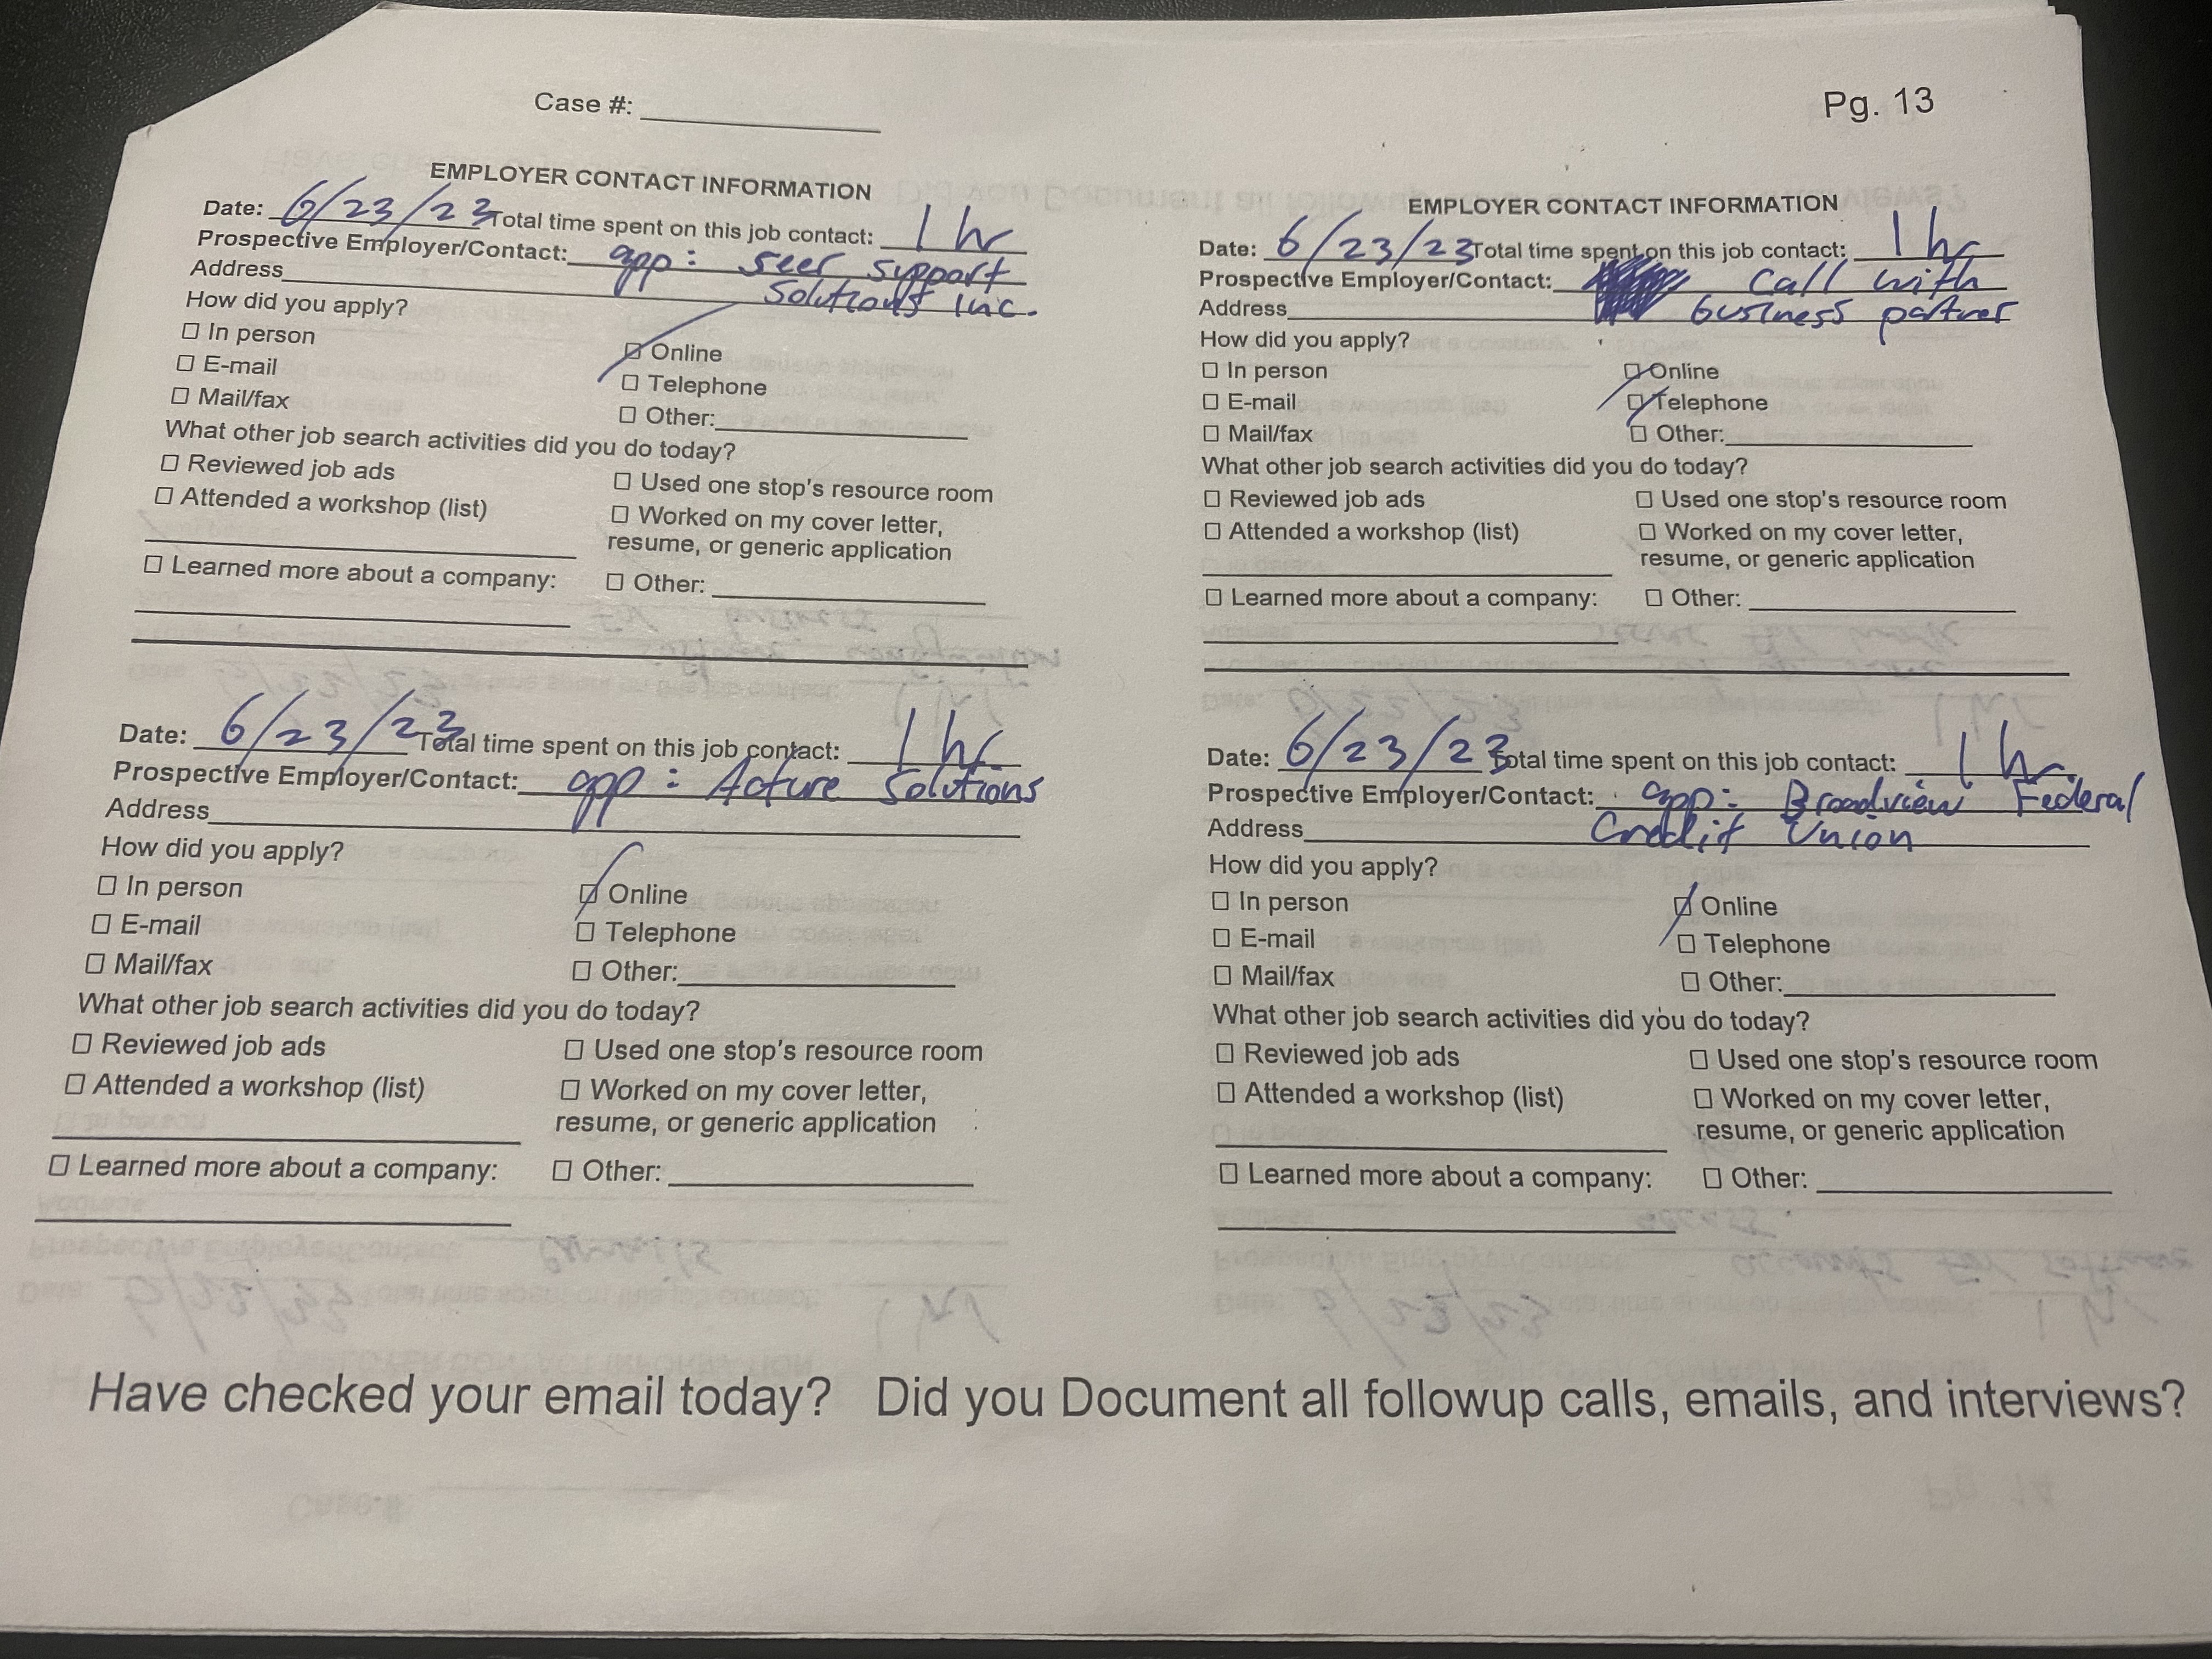 Case #:
Pg. 13
EMPLOYER CONTACT INFORMATION
Date: 6/23/23 Total time spent on this job contact: 1 hr
Prospective Employer/Contact: app: Seer Support
Address Solutions Inc.
How did you apply?
In person
Online
E-mail
Telephone
Mail/fax
Other:
What other job search activities did you do today?
Reviewed job ads
Used one stop's resource room
Attended a workshop (list)
Worked on my cover letter,
resume, or generic application
Learned more about a company:
Other:
EMPLOYER CONTACT INFORMATION
Date: 6/23/23 Total time spent on this job contact: 1 hr
Prospective Employer/Contact: Call with
Address business partner
How did you apply?
In person
Online
E-mail
Telephone
Mail/fax
Other:
What other job search activities did you do today?
Reviewed job ads
Used one stop's resource room
Attended a workshop (list)
Worked on my cover letter,
resume, or generic application
Learned more about a company:
Other:
Date: 6/23/23 Total time spent on this job contact: 1 hr
Prospective Employer/Contact: app: Acture Solutions
Address
How did you apply?
In person
Online
E-mail
Telephone
Mail/fax
Other:
What other job search activities did you do today?
Reviewed job ads
Used one stop's resource room
Attended a workshop (list)
Worked on my cover letter,
resume, or generic application
Learned more about a company:
Other:
Date: 6/23/23 Total time spent on this job contact: 1 hr
Prospective Employer/Contact: app: Broadview Federal
Address Credit Union
How did you apply?
In person
Online
E-mail
Telephone
Mail/fax
Other:
What other job search activities did you do today?
Reviewed job ads
Used one stop's resource room
Attended a workshop (list)
Worked on my cover letter,
resume, or generic application
Learned more about a company:
Other:
Have checked your email today? Did you Document all followup calls, emails, and interviews?